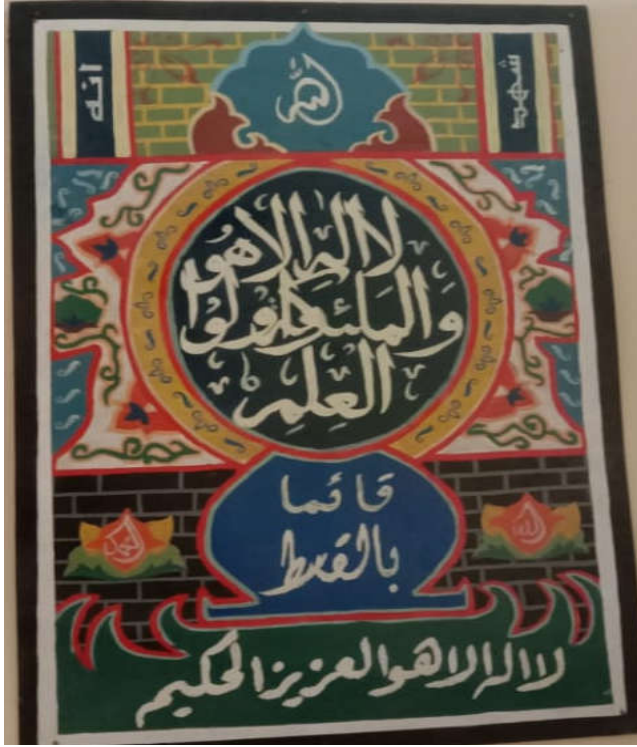 شهد
الله
انه
لا اله الا هو
والملئكة واولوا
العلم
قائما
بالقسط
الله
محمد
لا اله الا هو العزيز الحكيم